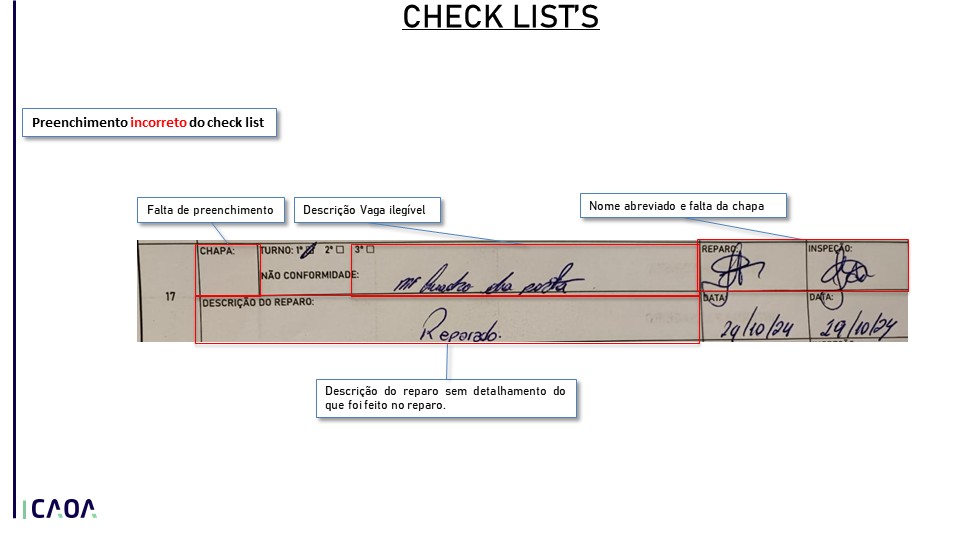 CHECK LIST'S
Preenchimento incorreto do check list
Falta de preenchimento
Descrição Vaga ilegível
Nome abreviado e falta da chapa
CHAPA:
TURNO: 1ª ☑ 2ª ☐ 3ª ☐
REPARO:
INSPEÇÃO:
NÃO CONFORMIDADE:
quadro da porta
17
DESCRIÇÃO DO REPARO:
Reparado.
DATA:
DATA:
29/10/24
29/10/24
Descrição do reparo sem detalhamento do
que foi feito no reparo.
CAOA